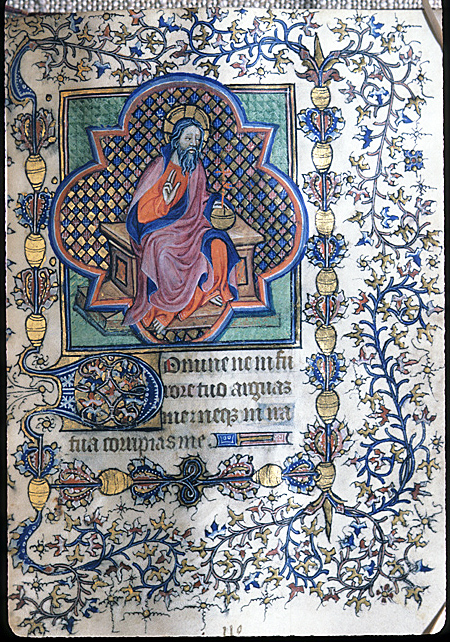 Domine ne in fu
rore tuo arguas
me neqz in ira
tua corripias me
110